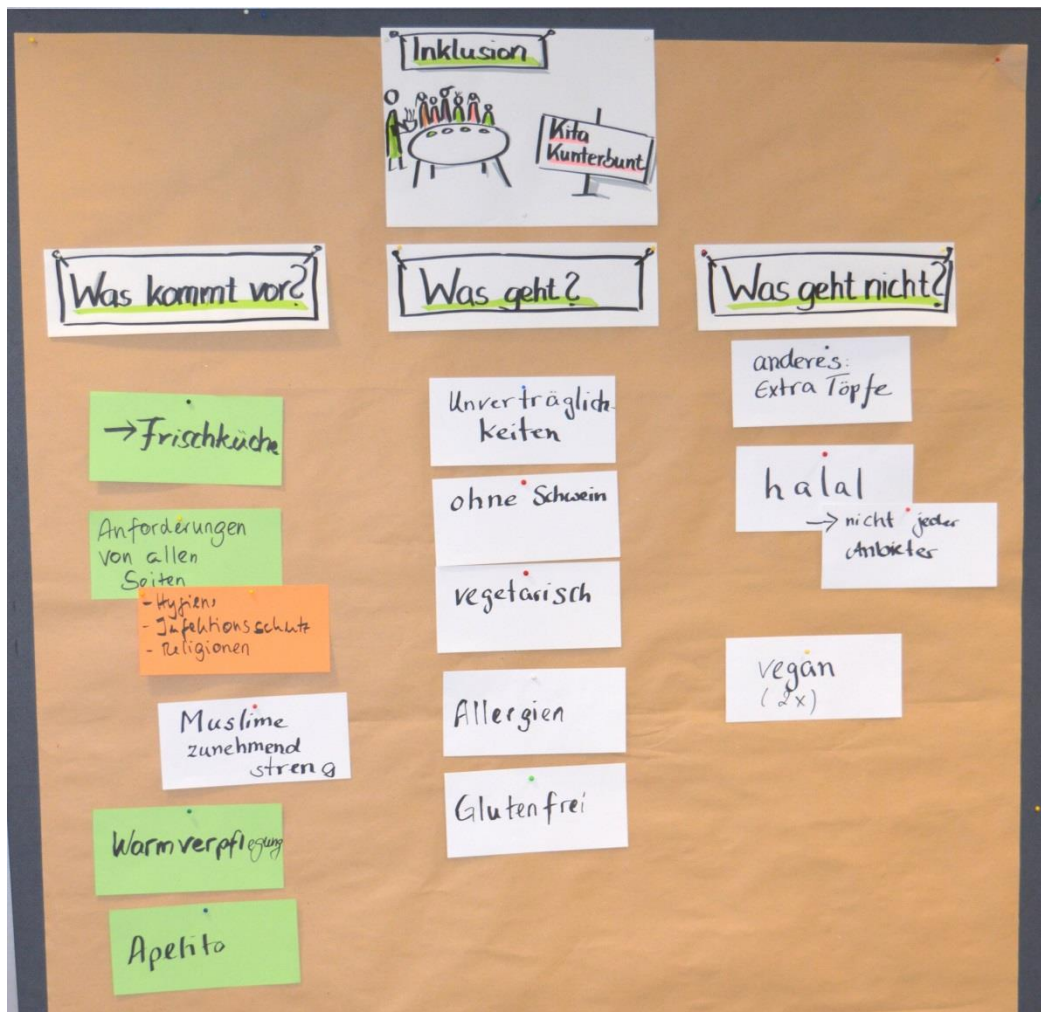 Inklusion
Kita
Kunterbunt
Was kommt vor?
→ Frischküche
Anforderungen
von allen
Seiten
- Hygiene
- Infektionsschutz
- Religionen
Muslime
zunehmend
streng
Warmverpflegung
Apetito
Was geht?
Unverträglich-
keiten
ohne Schwein
vegetarisch
Allergien
Glutenfrei
Was geht nicht?
anderes:
Extra Töpfe
halal
→ nicht jeder
Anbieter
vegan
(2x)